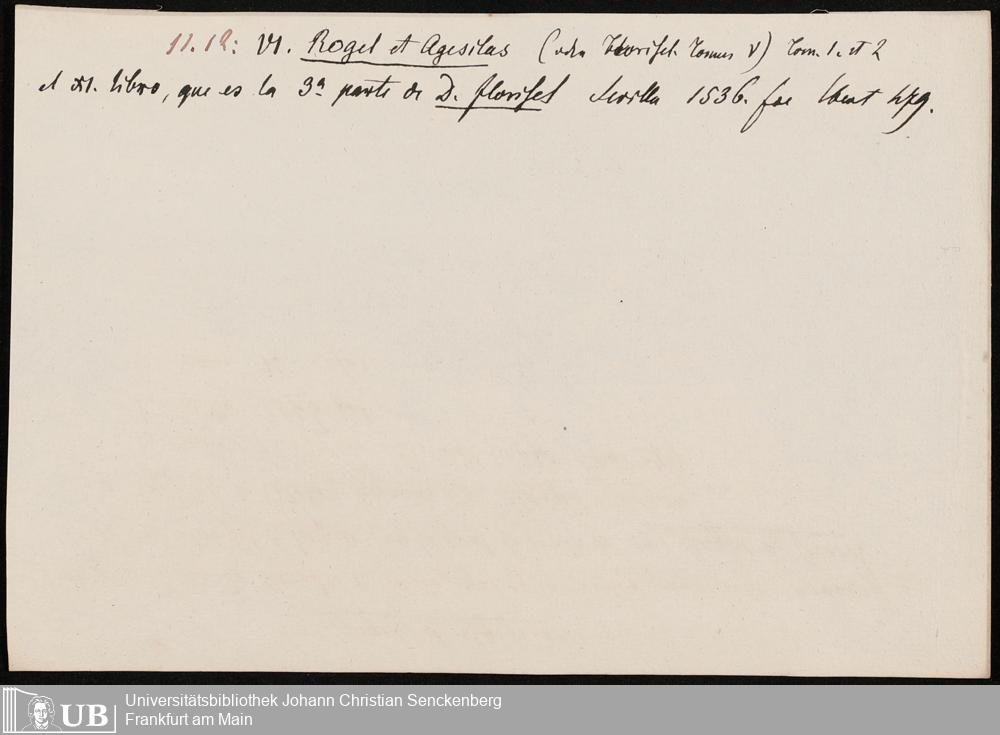 11.12: VI. Rogel et Agesilas (oder Florisel Tomus V) Tom. 1. et 2
el XI. libro, que es la 3ª parte de D. florisel Sevilla 1536. fae
UB Universitätsbibliothek Johann Christian Senckenberg
Frankfurt am Main